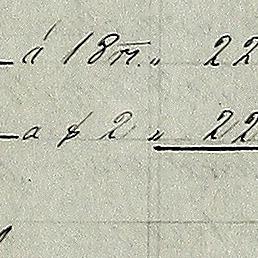 á 18 m. " 22
a $ 2 " 22